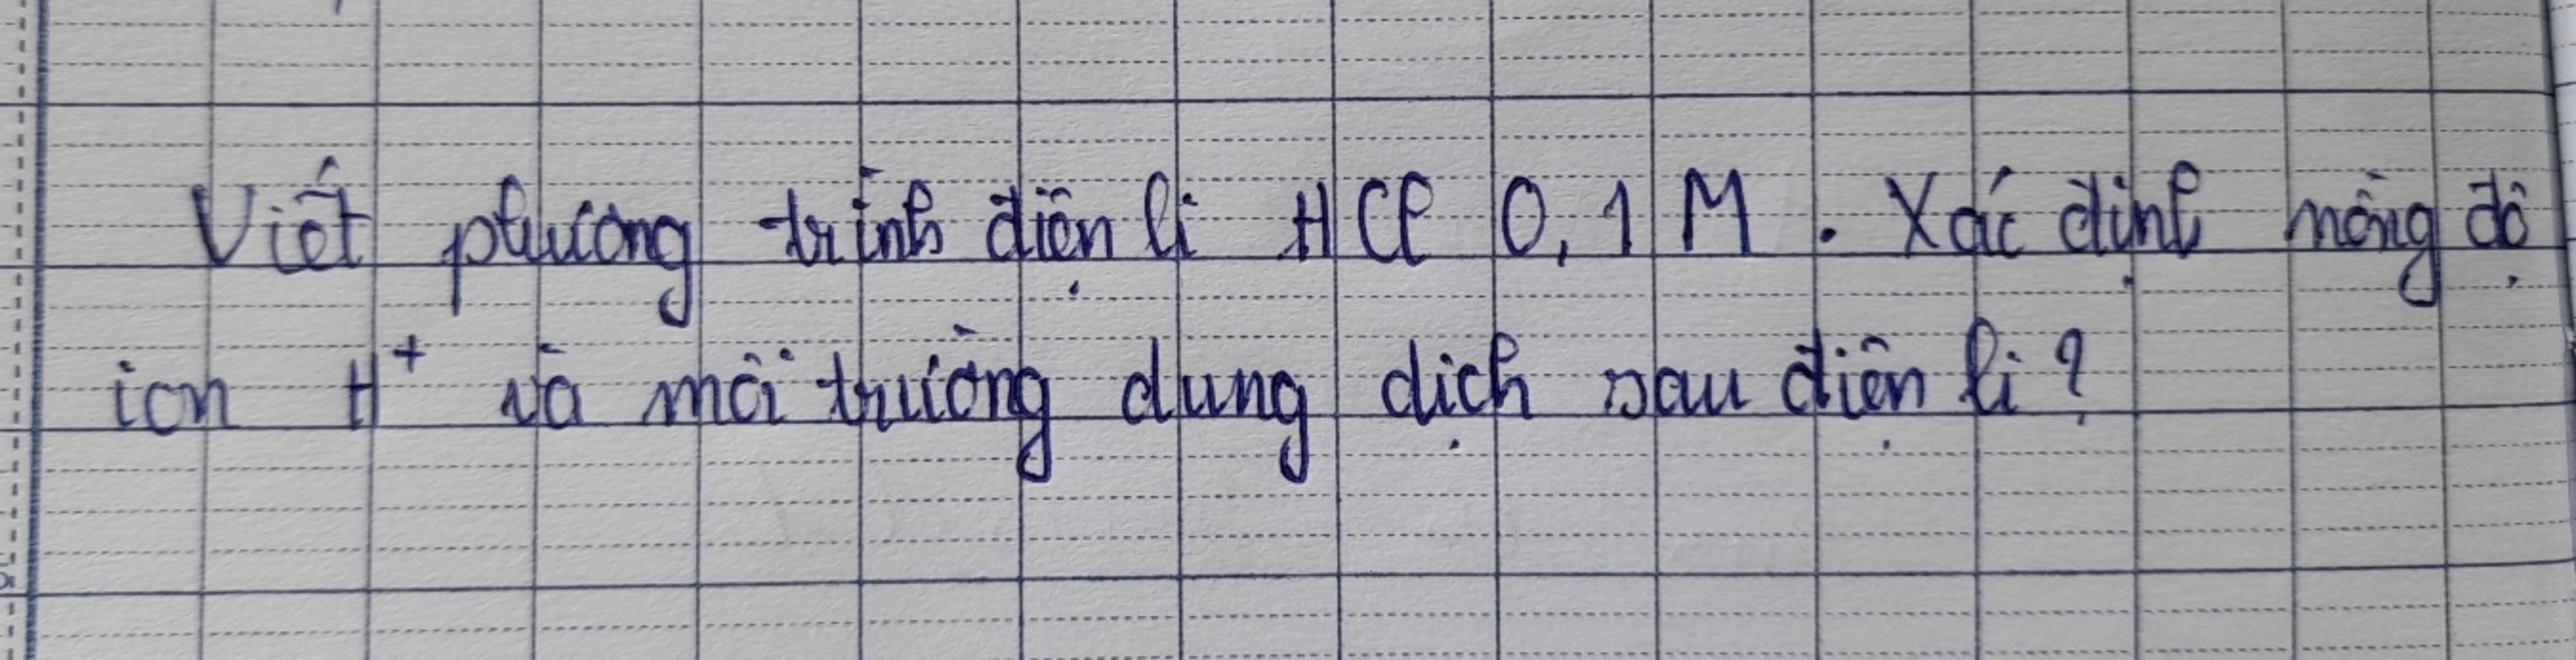 Viết phương trình điện li HCl 0,1 M. Xác định nồng độ
ion H⁺ và môi trường dung dịch sau điện li?